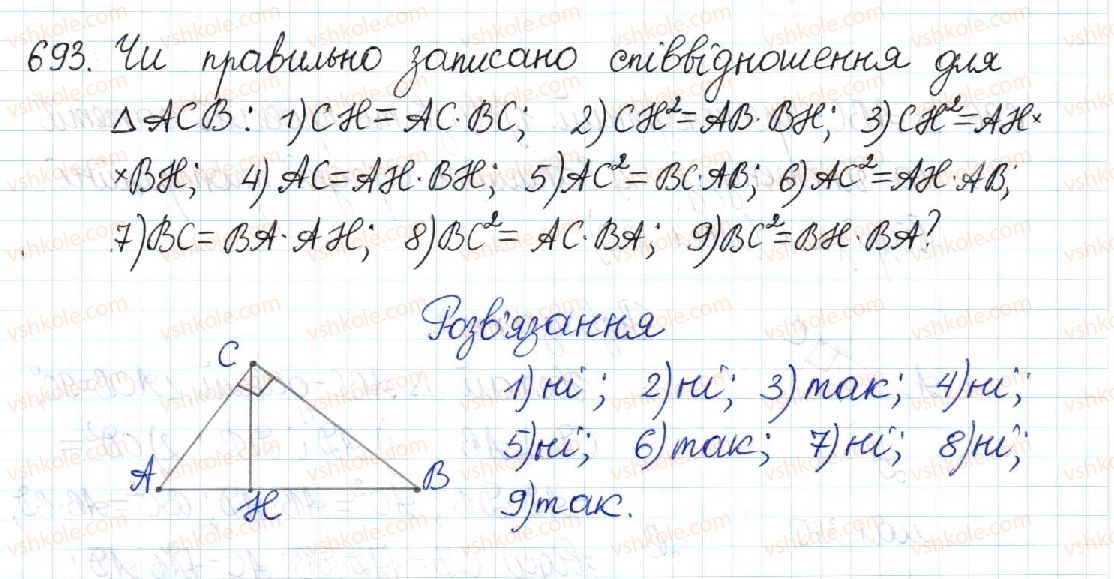 693. Чи правильно записано співвідношення для
Δ ACB: 1) CH = AC·BC; 2) CH² = AB·BH; 3) CH² = AH×
×BH; 4) AC = AH·BH; 5) AC² = BC·AB; 6) AC² = AH·AB;
7) BC = BA·AH; 8) BC² = AC·BA; 9) BC² = BH·BA?
Розв'язання
C
A
H
B
1) ні; 2) ні; 3) так; 4) ні;
5) ні; 6) так; 7) ні; 8) ні;
9) так.
vshkole.com